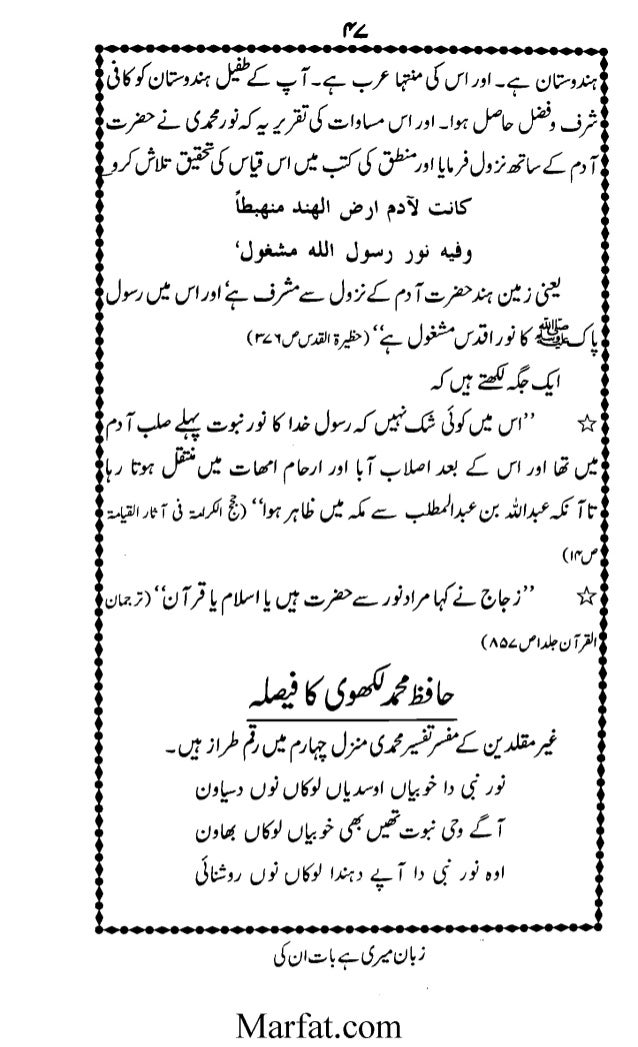 ۴۷
ہندوستان ہے۔ اور اس کی منتہا عرب ہے۔ آپ کے طفیل ہندوستان کو کافی
شرف و فضل حاصل ہوا۔ اور اس مساوات کی تقریر یہ کہ نور محمدی نے حضرت
آدم کے ساتھ نزول فرمایا اور منطق کی کتب میں اس قیاس کی تحقیق تلاش کرو
کانت لآدم ارض الهند منهبطاً
وفيه نور رسول الله مشغول‘
یعنی زمین ہند حضرت آدم کے نزول سے مشرف ہے‘ اور اس میں رسول
پاک ﷺ کا نور اقدس مشغول ہے‘‘ (حظیرۃ القدس ص ۳۷۶)
ایک جگہ لکھتے ہیں کہ
☆ ’’اس میں کوئی شک نہیں کہ رسول خدا کا نور نبوت پہلے صلب آدم
میں تھا اور اس کے بعد اصلاب آبا اور ارحام امھات میں منتقل ہوتا رہا
تا آنکہ عبداللہ بن عبدالمطلب سے مکہ میں ظاہر ہوا‘‘ (حجج الکرامۃ فی آثار القیامۃ
ص ۱۴)
☆ ’’زجاج نے کہا مراد نور سے حضرت ہیں یا اسلام یا قرآن‘‘ (ترجمان
القرآن جلد ا ص ۸۵۷)
حافظ محمد لکھوی کا فیصلہ
غیر مقلدین کے مفسر تفسیر محمدی منزل چہارم میں رقم طراز ہیں۔
نور نبی دا خوبیاں اوسدیاں لوکاں نوں دسیاون
آگے وحی نبوت تھیں بھی خوبیاں لوکاں بھاون
اوہ نور نبی دا آپے دہندا لوکاں نوں روشنائی
زبان میری ہے بات ان کی
Marfat.com